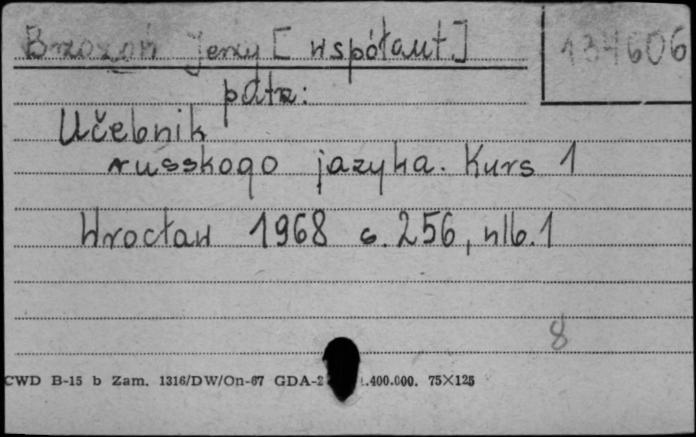 Brzozoń Jerzy [współaut.]
134606
patrz:
Učebnik
russkogo jazyka. Kurs 1
Wrocław 1968 s. 256, nlb. 1
8
CWD B-15 b Zam. 1316/DW/On-67 GDA-2 .400.000. 75×125